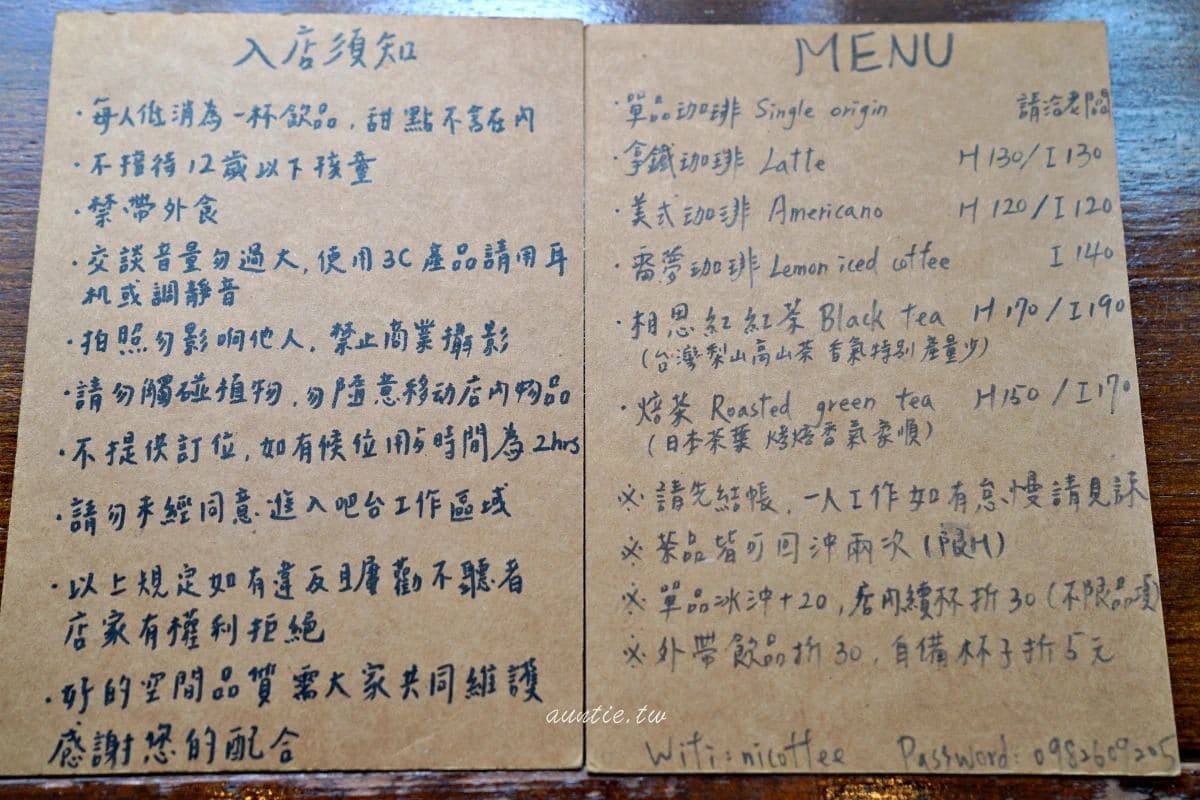 入店須知
·每人低消為一杯飲品,甜點不含在內
·不接待12歲以下孩童
·禁帶外食
·交談音量勿過大,使用3C產品請用耳
机或調靜音
·拍照勿影响他人,禁止商業攝影
·請勿觸碰植物,勿隨意移动店內物品
·不提供訂位,如有候位用餐時間為2hrs
·請勿未經同意進入吧台工作區域
·以上規定如有違反且屢勸不聽者
店家有權利拒絕
·好的空間品質需大家共同維護
感謝您的配合
MENU
·單品珈琲 Single origin 請洽老闆
·拿鐵珈琲 Latte H130/I130
·美式珈琲 Americano H120/I120
·香夢珈琲 Lemon iced coffee I140
·相思紅紅茶 Black tea H170/I190
(台灣梨山高山茶 香氣特別 產量少)
·焙茶 Roasted green tea H150/I170
(日本茶葉 烤焙香氣柔順)
※請先結帳,一人工作如有怠慢請見諒
※茶品皆可回沖兩次(限H)
※單品冰沖+20,店內續杯折30(不限品項)
※外帶飲品折30,自備杯子折5元
Wifi:nicoffee Password:0982609205
auntie.tw